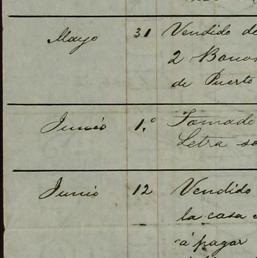 Mayo 31 Vendido de
2 Bonos
de Puerto
Junio 1.º Tomado
Letra so
Junio 12 Vendido
la casa
á pagar